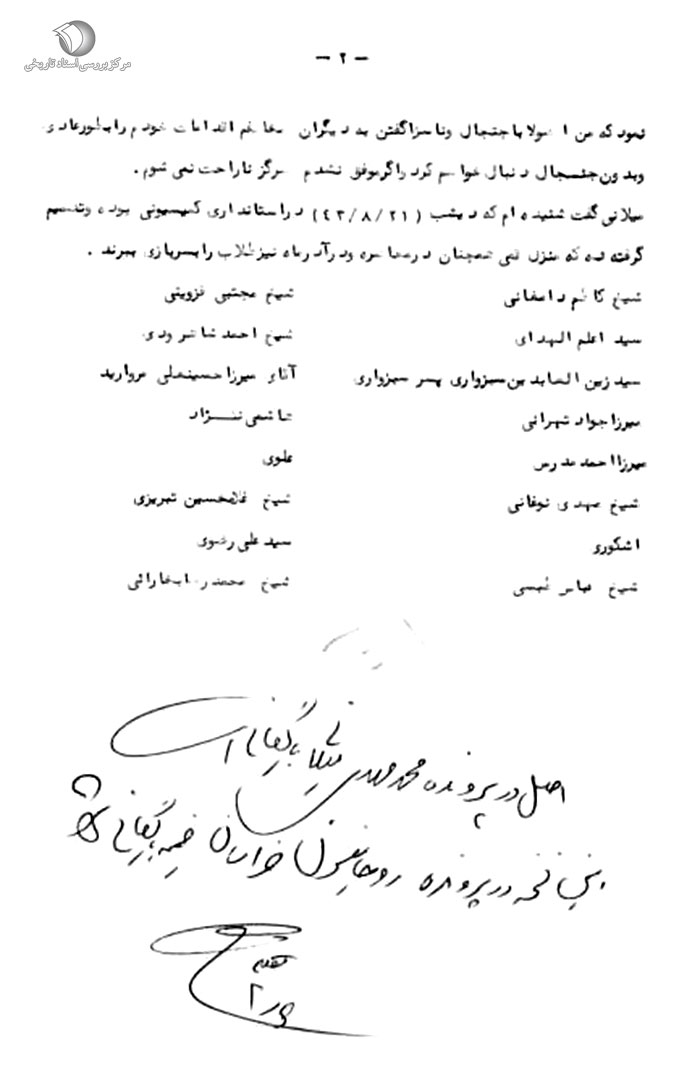 مرکز بررسی اسناد تاریخی
- ۲ -
نمود که من اصولا با جنجال وناسزا گفتن به دیگران مخالفم اقدامات خودم را بطور عادی
وبدون جنجال دنبال خواهم کرد واگر موفق نشدم هرگز ناراحت نمی شوم.
میلانی گفت شنیده ام که دیشب (۴۳/۸/۲۱) در استانداری کمیسیونی بوده وتصمیم
گرفته شده که منزل قمی همچنان در محاصره ودر آذرماه نیز طلاب را بسربازی ببرند.
شیخ کاظم دامغانی شیخ مجتبی قزوینی
سید اعلم الهدای شیخ احمد شاهرودی
سید زین العابدین سبزواری پسر سبزواری آقای میرزا حسینعلی مروارید
میرزا جواد تهرانی هاشمی نژاد
میرزا احمد مدرس علوی
شیخ مهدی نوقانی شیخ غلامحسین تبریزی
اشکوری سید علی رضوی
شیخ عباس شیخ محمدرضا بخارائی
اصل در پرونده محمد مهدی بایگانی است
در پرونده روحانیون خراسان ضمیمه بایگانی